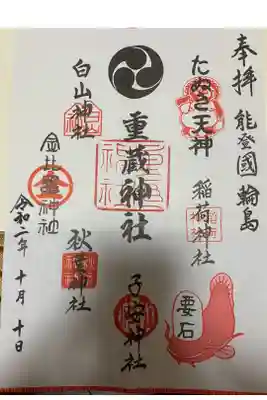 奉拝 能登國 輪島
たぬき天神
稲荷神社
要石
重蔵神社
子安神社
白山神社
秋葉神社
金比羅神社
令和二年 十月 十日